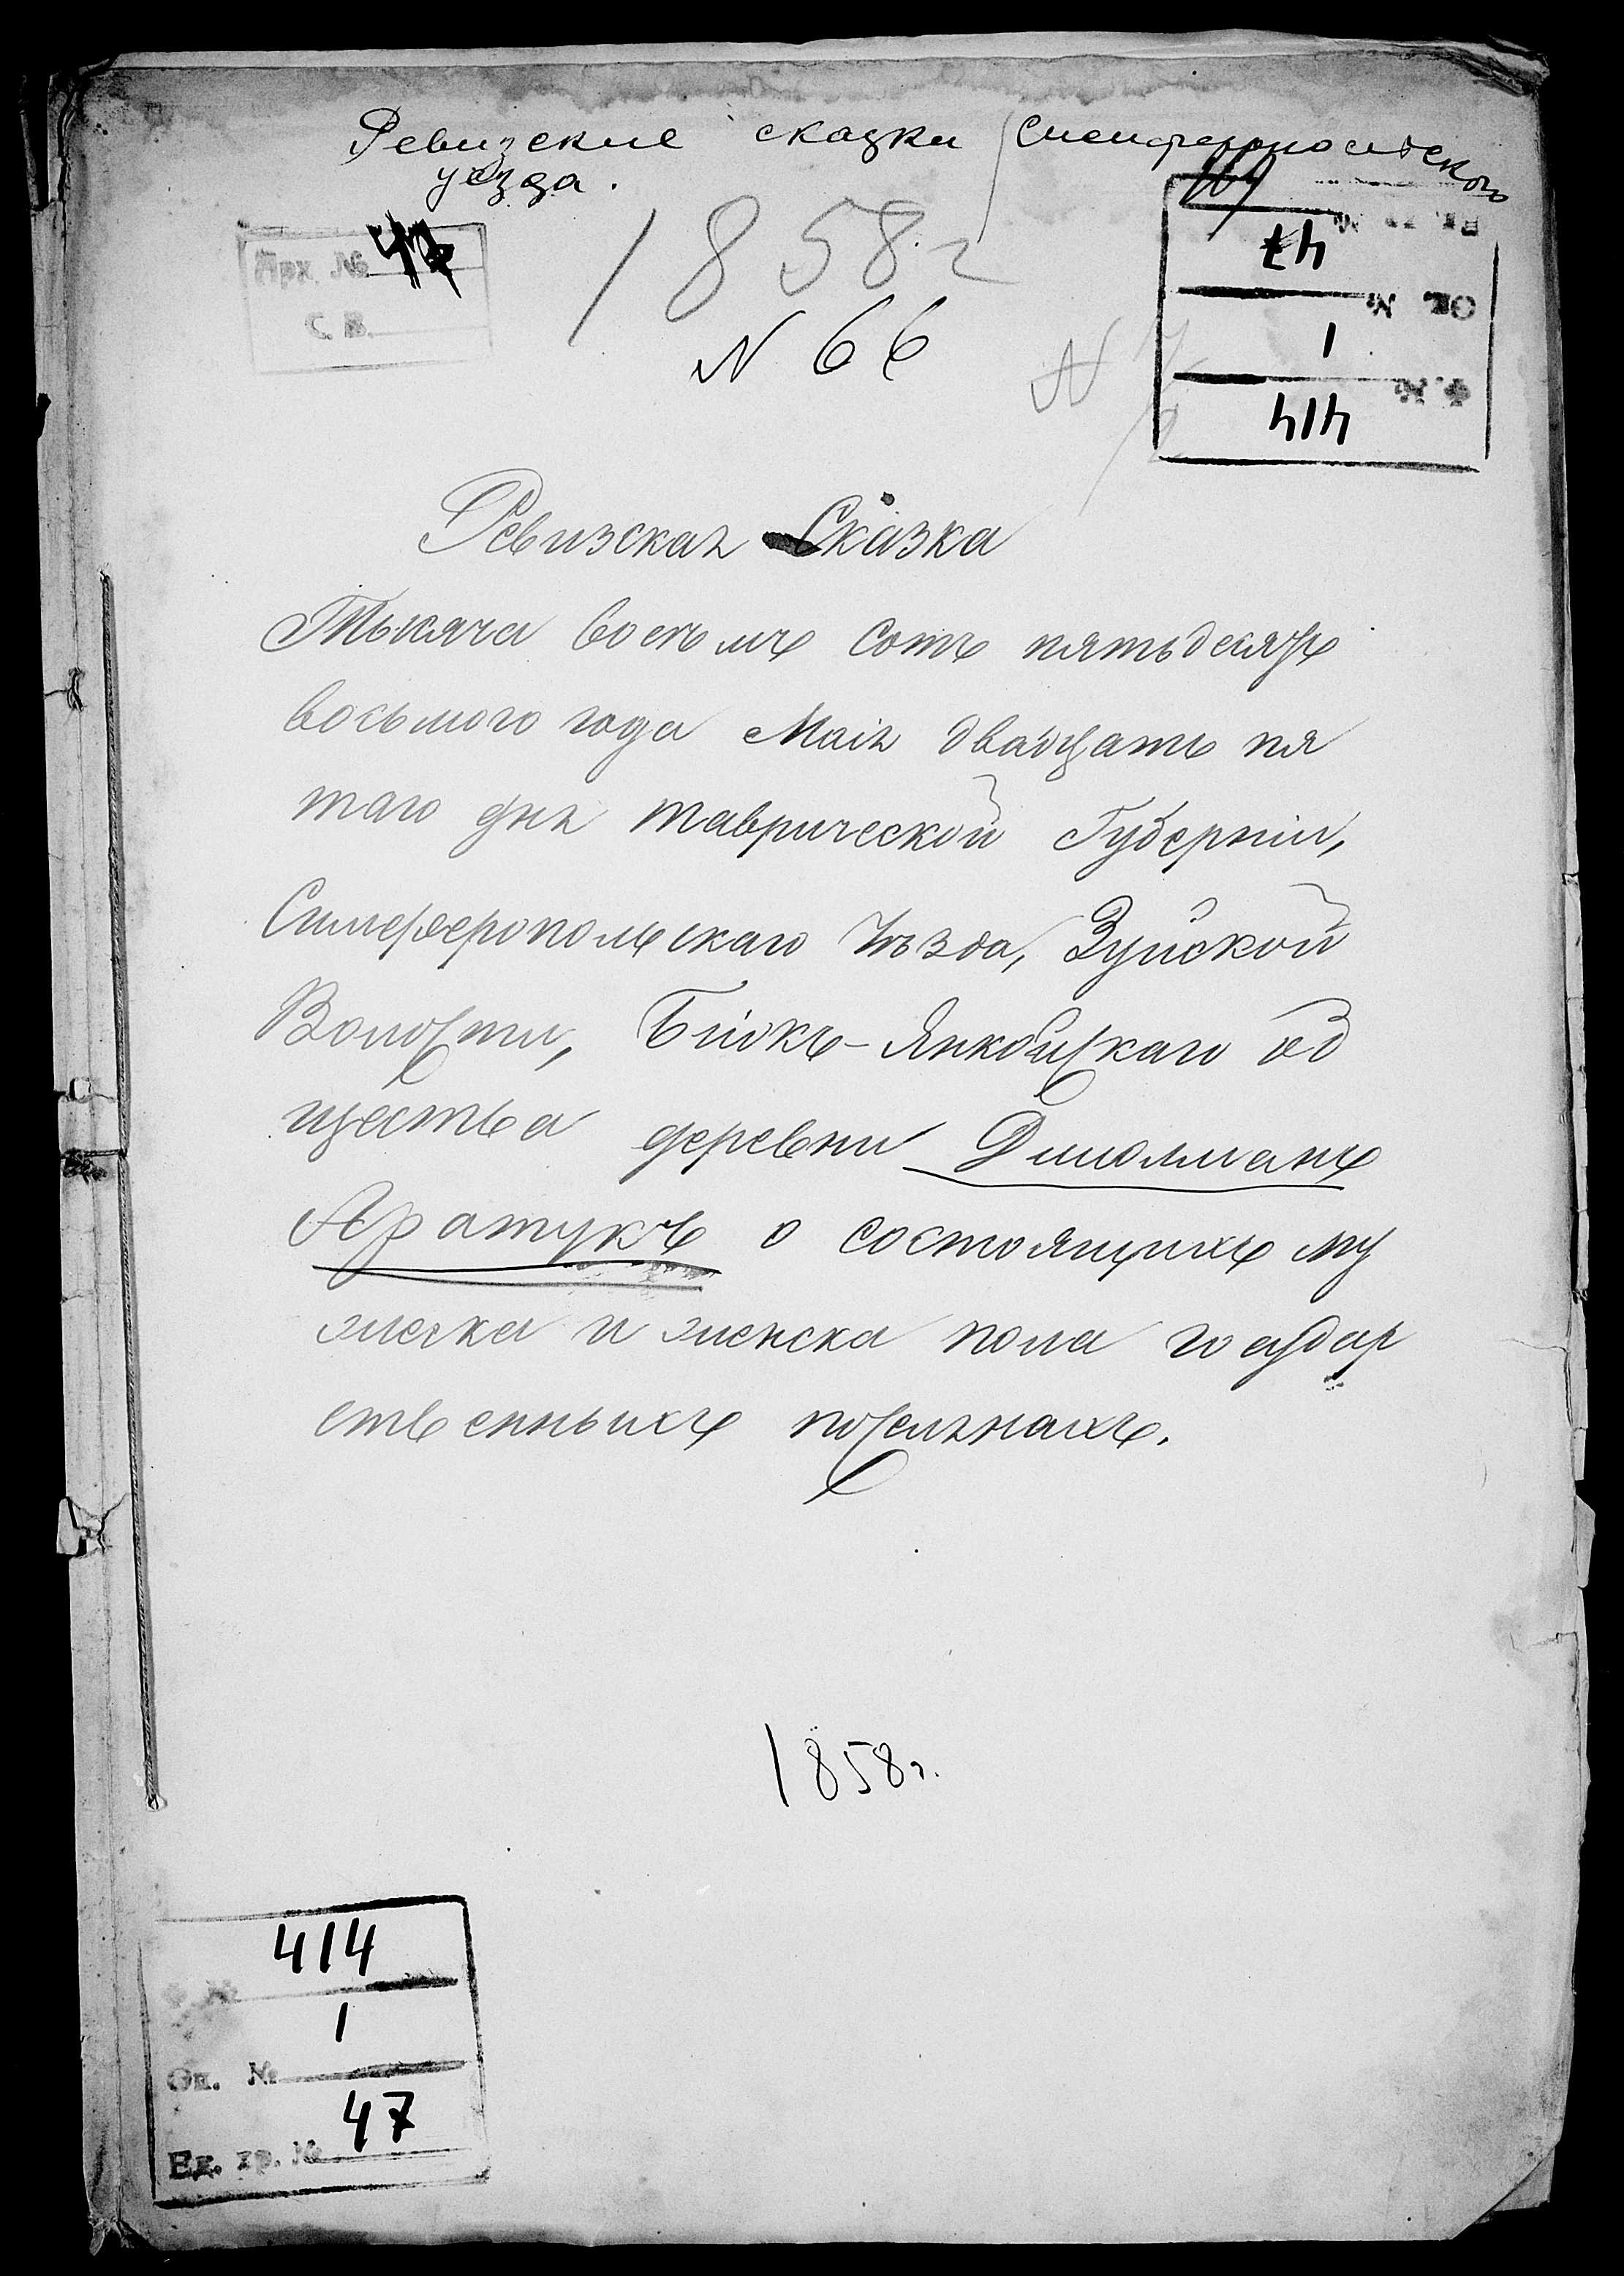 Ревизские сказки Симферопольского
уезда.
Арх. № 47
С. В.
1858 г
N 66
N
Ед. хр. № 47
Оп. № 1
Ф. № 414
Ревизская Сказка
Тысяча восемь сотъ пятьдесятъ
восьмого года Маія двадцать пя
таго дня Таврической Губерніи,
Симферопольскаго Уѣзда, Зуйской
Волости, Біюкъ-Янкойскаго об
щества деревни Джолманъ
Аратукъ о состоящихъ му
жеска и женска пола государ
ственныхъ поселянахъ.
1858 г.
414
Ф. №
1
Оп. №
47
Ед. хр. №